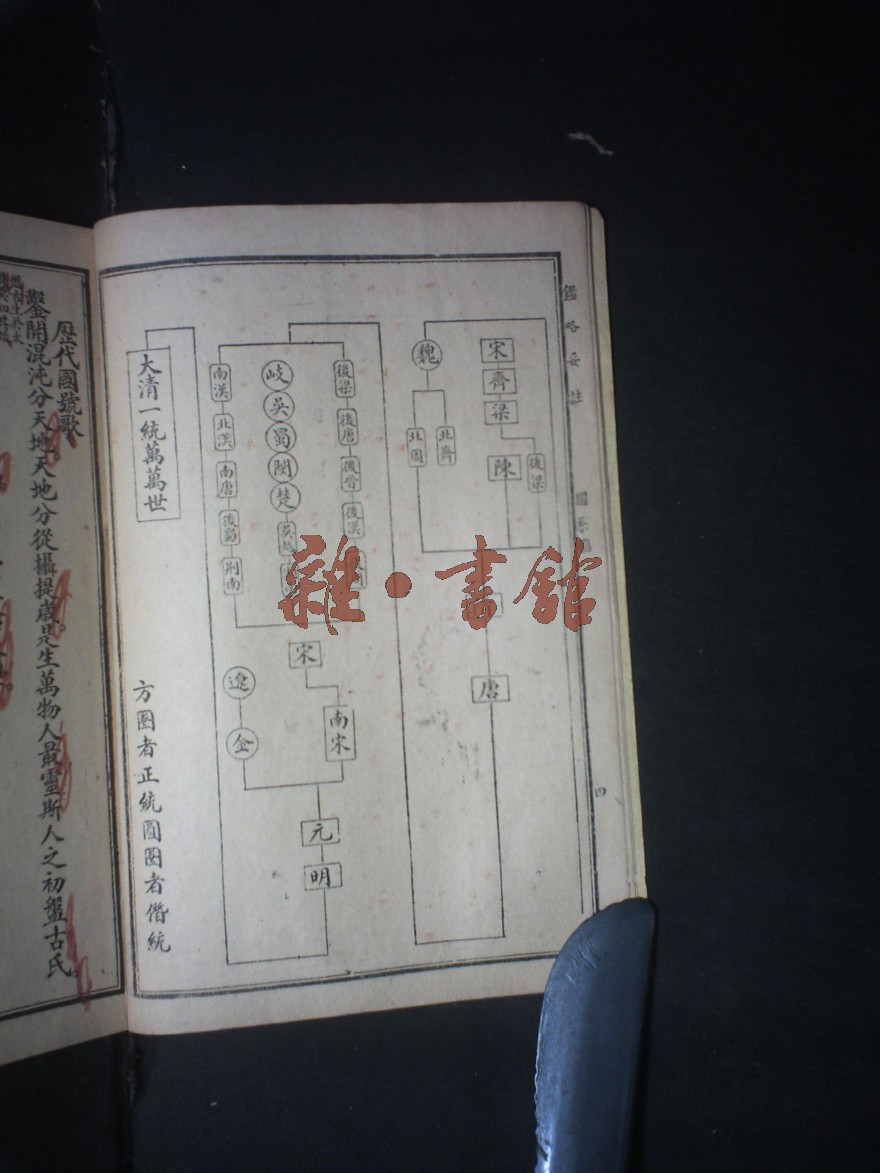 鑑略妥註
四
宋
齊
梁
陳
後梁
魏
北齊
北周
唐
後梁
後唐
後晉
後漢
岐
吳
蜀
閩
楚
南漢
北漢
南唐
後蜀
荆南
宋
南宋
遼
金
元
明
大清一統萬萬世
方圈者正統圓圈者僭統
歷代國號歌
鑿開混沌分天地天地分從攝提歲是生萬物人最靈斯人之初盤古氏
雜·書館